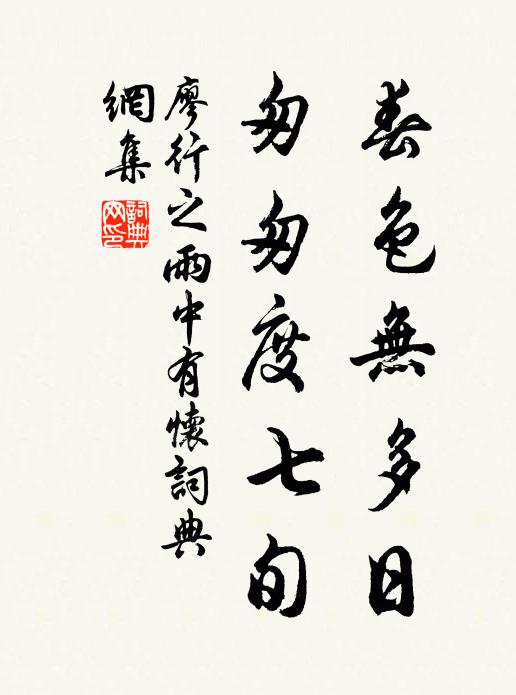 春色無多日
匆匆度七旬
廖行之雨中有懷詞典
網集
詞典
网印